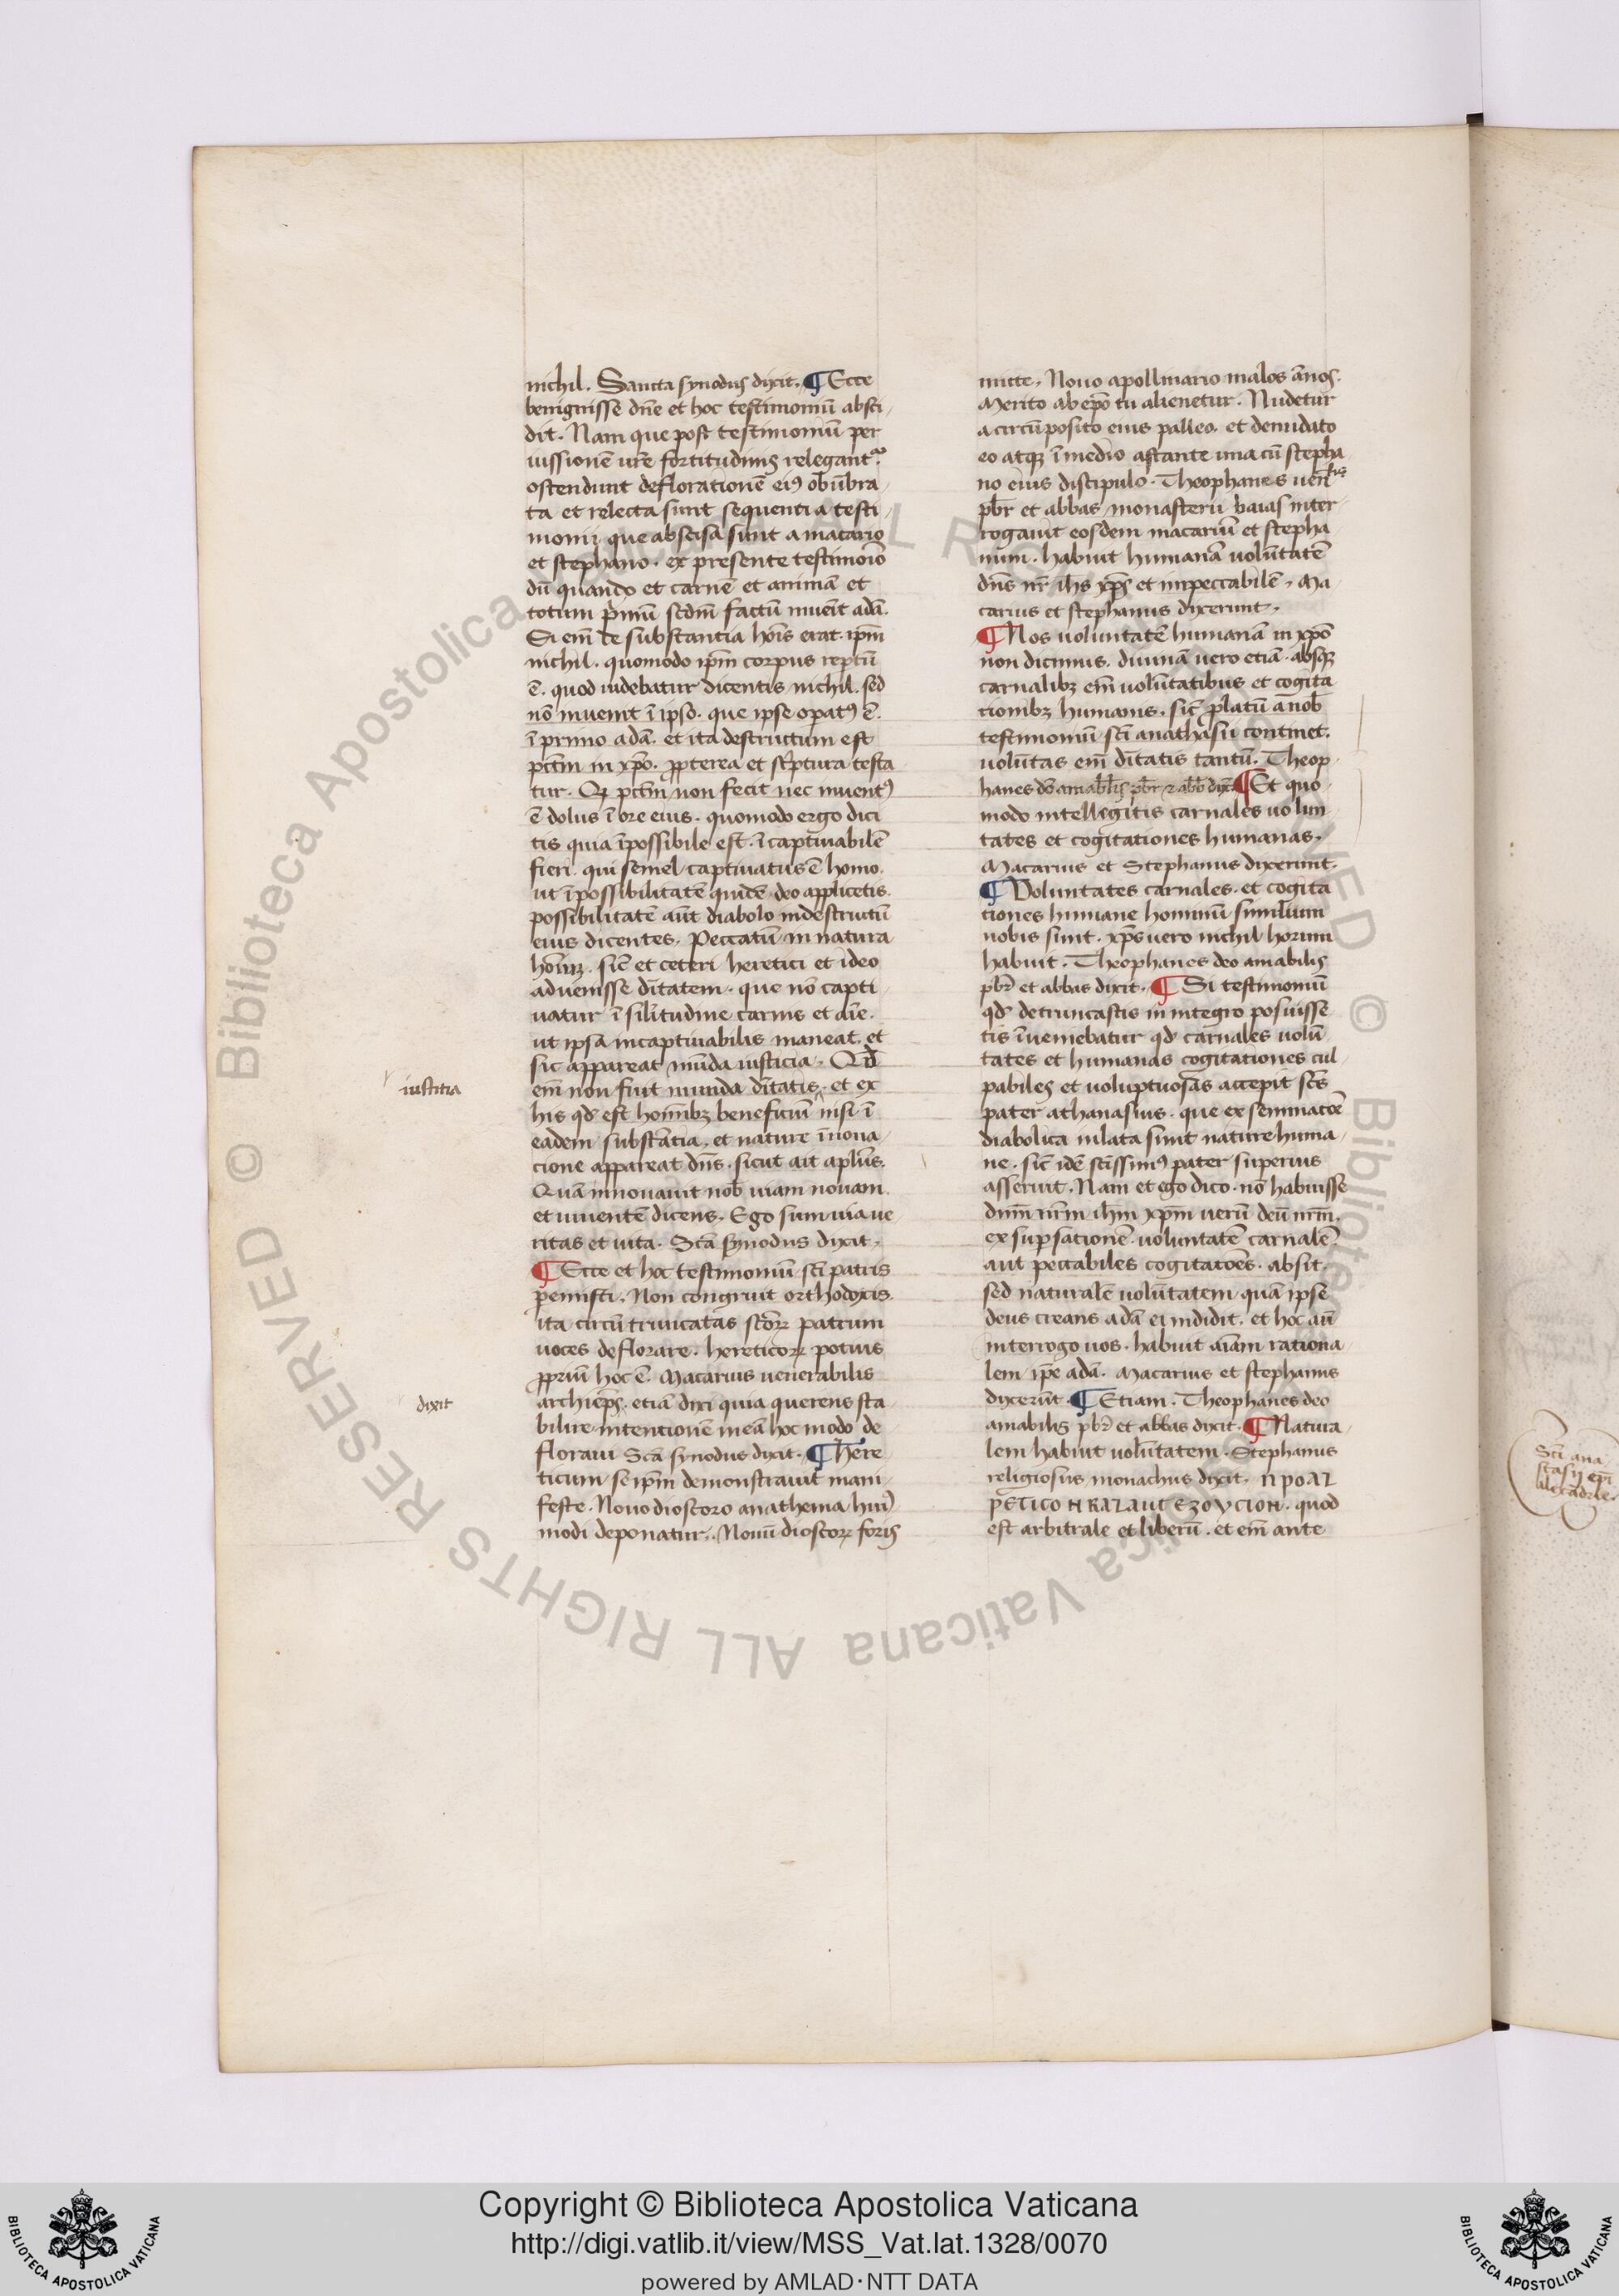 nichil. Sancta synodus dixit. ¶ Ecce
benignisse dn̄e et hoc testimoniū absci-
dit. Nam que post testimoniū per
iussionē vr̄e fortitudinis relegant᷑
ostendunt deflorationē eiꝰ obūbra-
ta et relecta sunt sequentia testi-
monii que abscisa sunt a macario
et stephano. ex presente testimoīo
dū quando et carnē et animā et
totum p̄mū scdm̄ factū inuen̄it adā.
Si em̄ de substantia hoīs erat ip̄m
nichil. quomodo ip̄m corpus reptū
ē. quod uidebatur dicentis nichil. sed
nō inuenit ī ipso. que ipse oꝑatꝰ ē.
ī primo adā. et ita destructum est
pctm̄ in xp̄o. ꝓpterea et sc̄ptura testa
tur. Qꝫ pctm̄ non fecit nec inuentꝰ
ē dolus ī ore eius. quomodo ergo dici
tis quia īpossibile est. īcaptiuabilē
fieri. qui semel captiuatus ē homo.
ut īpossibilitatē quidē deo applicetis.
possibilitatē aūt diabolo indestructū
eius dicentes. Peccatū in natura
hoīnꝫ. sic̄ et ceteri heretici et ideo
aduenisse dītatem. que nō capti-
uatur ī silītudine carnis et aīe.
ut ipsa incaptiuabilis maneat. et
sic appareat mūda iusticia. Qd̄
em̄ non fuit munda dītatis. et ex
his qd̄ est hoīnibꝫ beneficiū nisi ī
eadem substātia. et nature īnoua-
cione appareat dn̄s. sicut ait apl̄us.
Quā innouauit nob̄ uiam nouam.
et uiuentē dicens. Ego sum uia ue
ritas et uita. Scā synodus dixit.
¶ Ecce et hoc testimoniū scī patris
ꝑemisti. Non congruit orthodoxis
ita circū truncatas scōꝝ patrum
uoces deflorare. hereticoꝝ potius
ꝓpriū hoc ē. Macarius uenerabilis
archiep̄s. etiā dixi quia querens sta
bilire intentionē meā hoc modo de
floraui Scā synodus dixit. ¶ Here
ticum se ip̄m demonstrauit mani-
feste. Nouo dioscoro anathema hui᷒
modi deponatur. Nouū dioscoꝝ foris
iustitia
dixit
mitte. Nouo apollinario malos ānos.
Merito ab ep̄o tu alienetur. Nudetur
a circūposito eius palleo. et denudato
eo atqꝫ ī medio astante una cū stepha
no eius discipulo. Theophanes uen̄
pbr̄ et abbas monasterii baias inter-
rogauit eosdem macariū et stepha-
num. habuit humanā uolūtatē
dn̄s nr̄ ih̄s xp̄s et impeccabilē. Ma
carius et stephanus dixerunt.
¶ Nos uoluntatē humanā in xp̄o
non dicimus. diuinā uero etiā. absqꝫ
carnalibꝫ em̄ uolūtatibus et cogita
tionibꝫ humanis. sic̄ ꝓlatū a nob̄
testimoniū scī anathasii continet.
uolūtas em̄ dītatis tantū. Theop
hanes dō amabl̄is pbr̄ ⁊ abb̄ dix̄. ¶ Et quo
modo intellegitis carnales uolun
tates et cogitationes humanas.
Macarius et Stephanus dixerunt.
¶ Voluntates carnales. et cogita
tiones humane hominū similium
nobis sunt. xp̄s uero nichil horum
habuit. Theophanes deo amabilis
pbr̄ et abbas dixit. ¶ Si testimoniū
qd̄ detruncastis in integro posuisse
tis īueniebatur qd̄ carnales uolū
tates et humanas cogitationes cul-
pabiles et uoluptuosas accepit scs̄
pater athanasius. que ex seminatōe
diabolica inlata sunt nature huma-
ne. sic̄ idē scīssimꝰ pater superius
asseruit. Nam et ego dico. nō habuisse
dnm̄ nr̄m ih̄m xp̄m uerū deū nr̄m.
ex supsationē uoluntatē carnalē.
aut peccabiles cogitatōes. absit.
sed naturalē uolūtatem quā ipse
deus creans adā ei indidit. et hoc aū
interrogo uos. habuit aīam rationa
lem ip̄e adā. Macarius et stephanus
dixerūt. ¶ Etiam. Theophanes deo
amabilis pbr̄ et abbas dixit. ¶ Natura-
lem habuit uolūtatem. Stephanus
religiosus monachus dixit. ΠΡΟΑΙ
ΡΕΤΙCΟΝ ΚΑΙ ΑΥΤΕΖΟΥCΙΟΝ. quod
est arbitrale et liberū. et em̄ ante
Scī ana
stasij ep̄i
Copyright © Biblioteca Apostolica Vaticana
http://digi.vatlib.it/view/MSS_Vat.lat.1328/0070
powered by AMLAD·NTT DATA
© Biblioteca Apostolica Vaticana ALL RIGHTS RESERVED
BIBLIOTECA APOSTOLICA VATICANA
BIBLIOTECA APOSTOLICA VATICANA